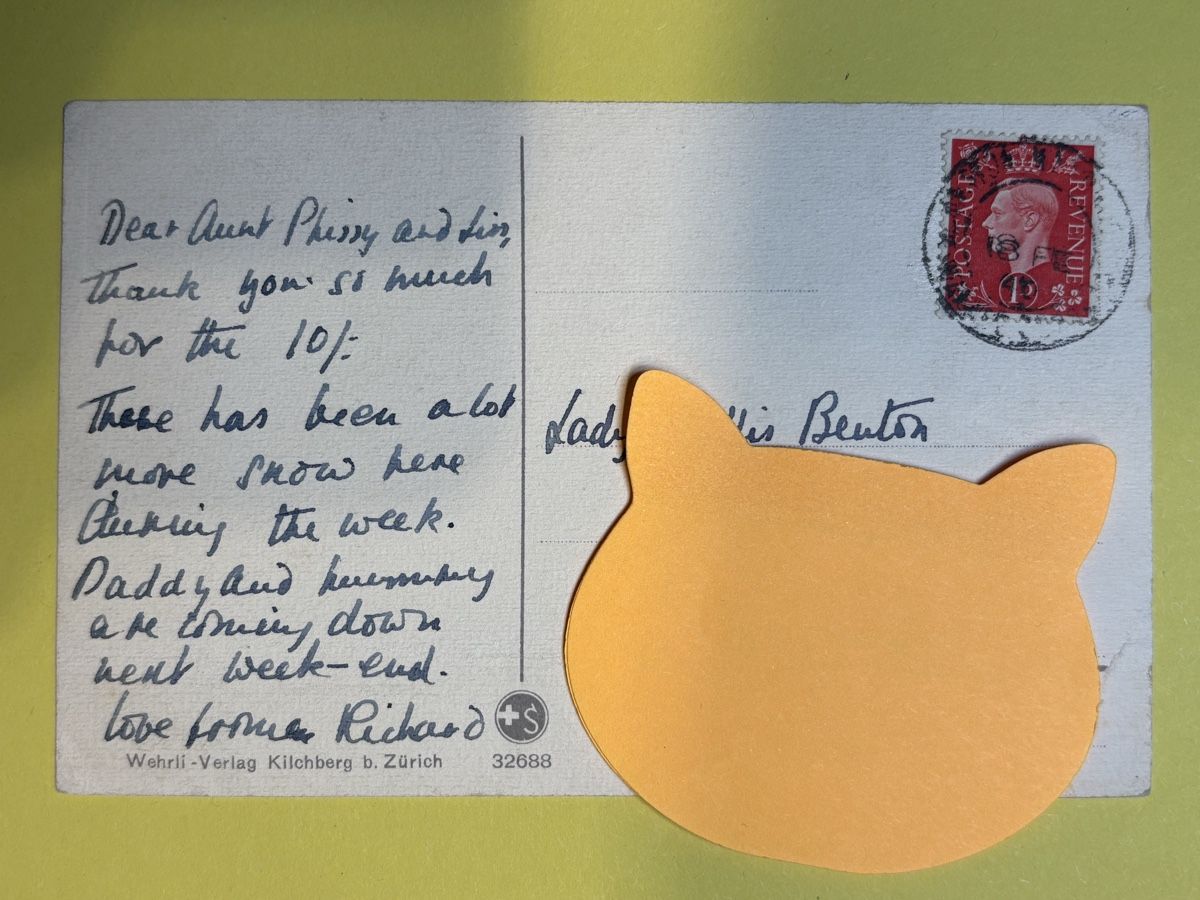 Dear Aunt Phissy and
thank you so much
for the 10/-
There has been a lot
more snow here
during the week.
Daddy and mummy
are coming down
next week-end.
love from Richard
Wehrli-Verlag Kilchberg b. Zürich 32688
+S
POSTAGE REVENUE
1D
18 FE
Lady
Benton